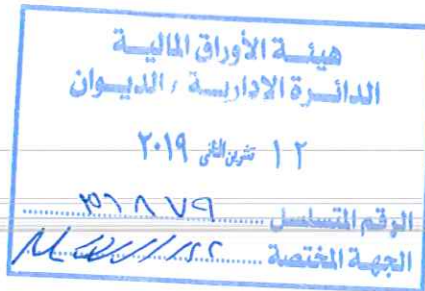 هيئة الأوراق المالية
الدائرة الادارية / الديوان
١٢ تشرين الثاني ٢٠١٩
الرقم المتسلسل
الجهة المختصة